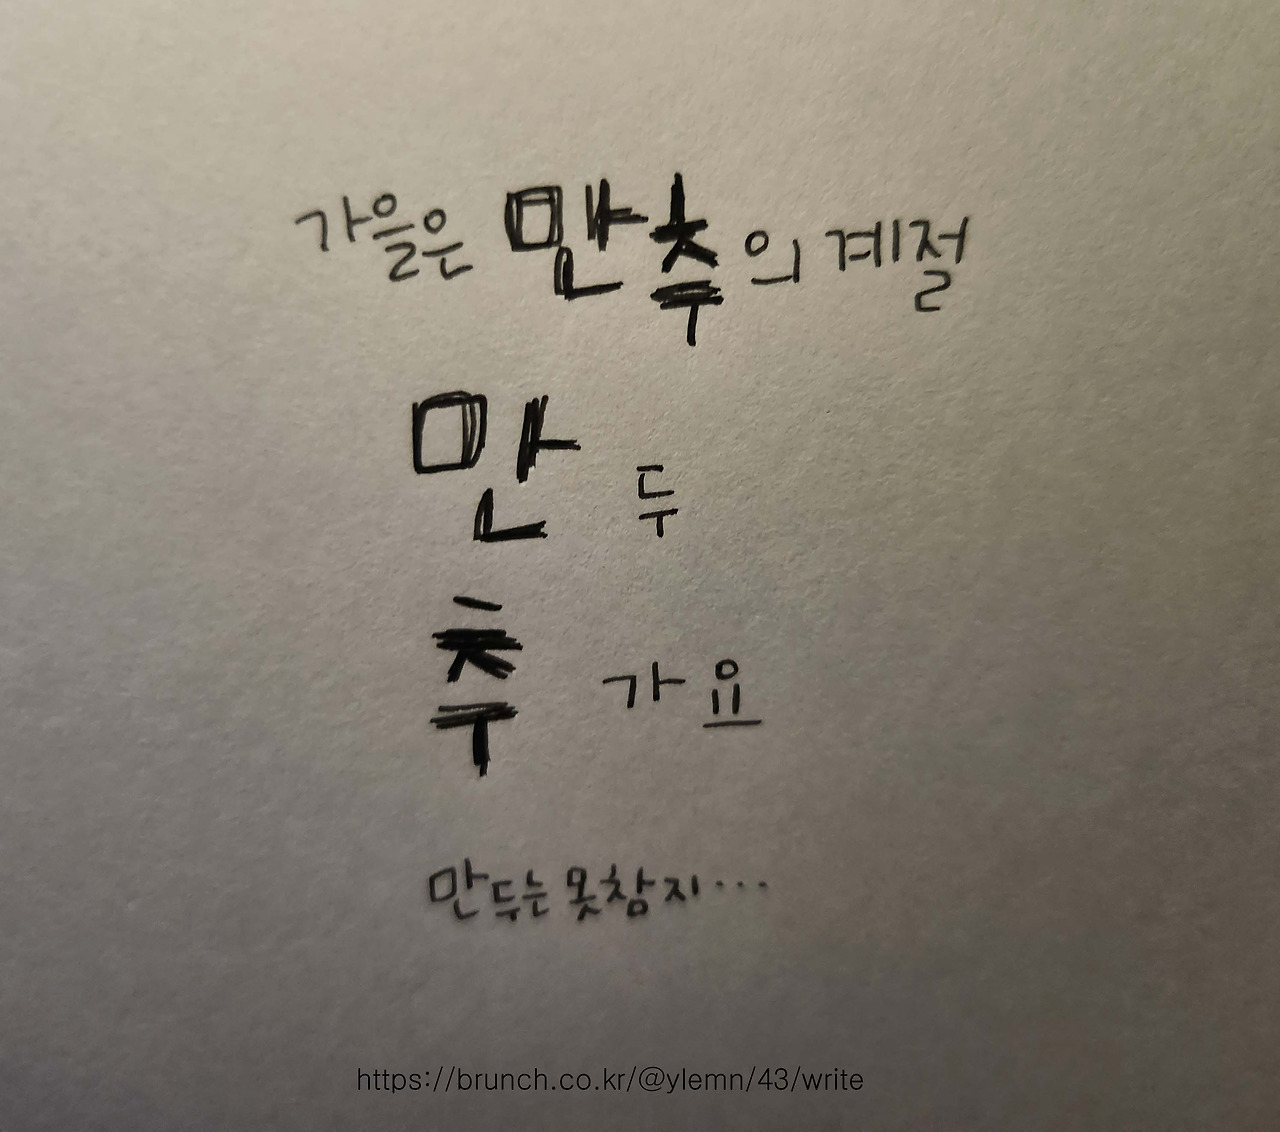 가을은 만추의 계절
만두
추가요
만두는 못참지...
https://brunch.co.kr/@ylemn/43/write